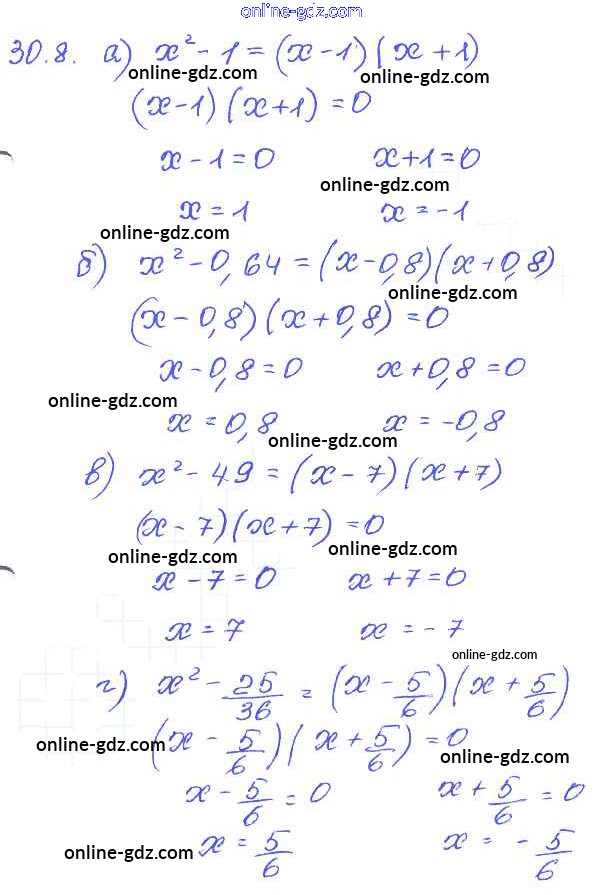 online-gdz.com
30.8. а) x² - 1 = (x - 1)(x + 1)
online-gdz.com online-gdz.com
(x - 1)(x + 1) = 0
x - 1 = 0 x + 1 = 0
online-gdz.com
x = 1 x = -1
online-gdz.com
б) x² - 0,64 = (x - 0,8)(x + 0,8)
online-gdz.com
(x - 0,8)(x + 0,8) = 0
x - 0,8 = 0 x + 0,8 = 0
online-gdz.com
x = 0,8 x = -0,8
online-gdz.com
в) x² - 49 = (x - 7)(x + 7)
(x - 7)(x + 7) = 0
online-gdz.com online-gdz.com
x - 7 = 0 x + 7 = 0
x = 7 x = -7
online-gdz.com
г) x² - 25/36 = (x - 5/6)(x + 5/6)
(x - 5/6)(x + 5/6) = 0
online-gdz.com online-gdz.com
x - 5/6 = 0 x + 5/6 = 0
x = 5/6 x = -5/6
online-gdz.com